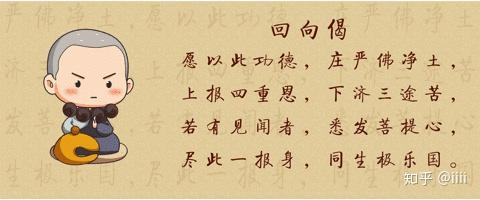 回向偈
愿以此功德，庄严佛净土，
上报四重恩，下济三途苦，
若有见闻者，悉发菩提心，
尽此一报身，同生极乐国。
知乎 @iiii